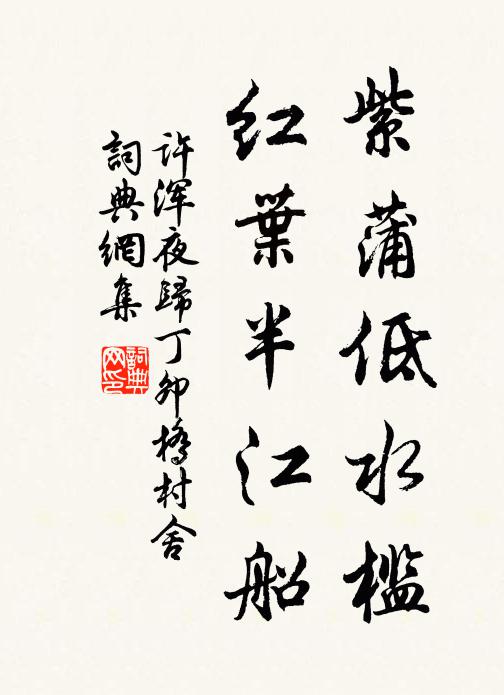 紫蒲低水檻
紅葉半江船
許渾夜歸丁卯橋村舍
詞典網集
詞典网印